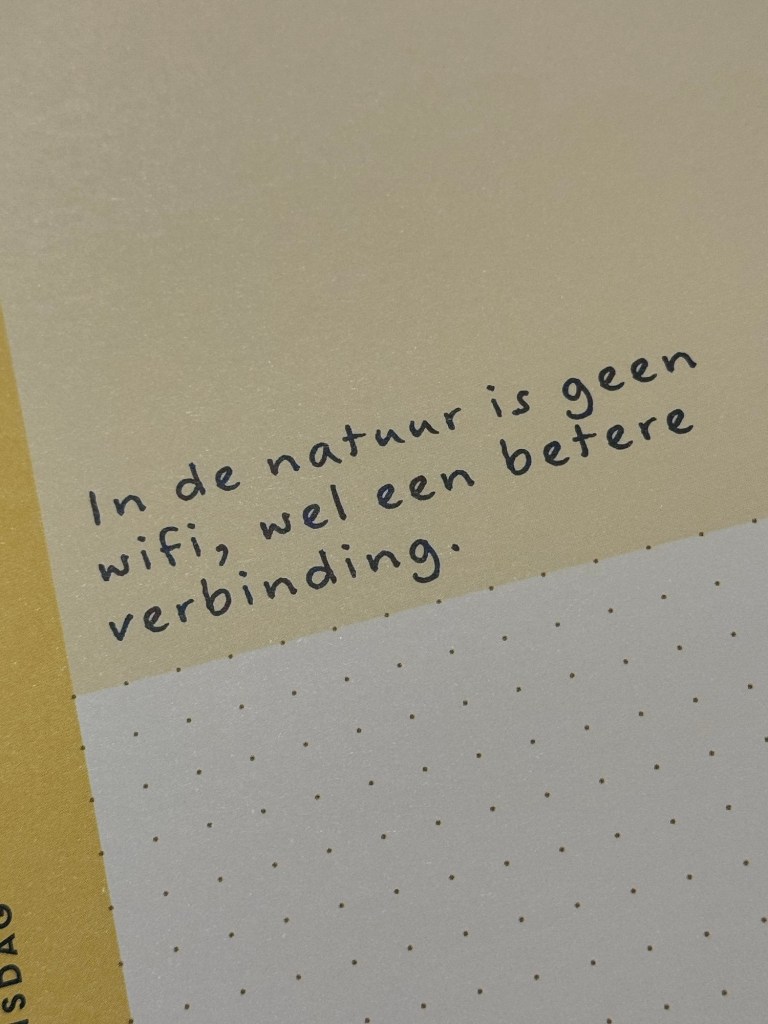 In de natuur is geen
wifi, wel een betere
verbinding.